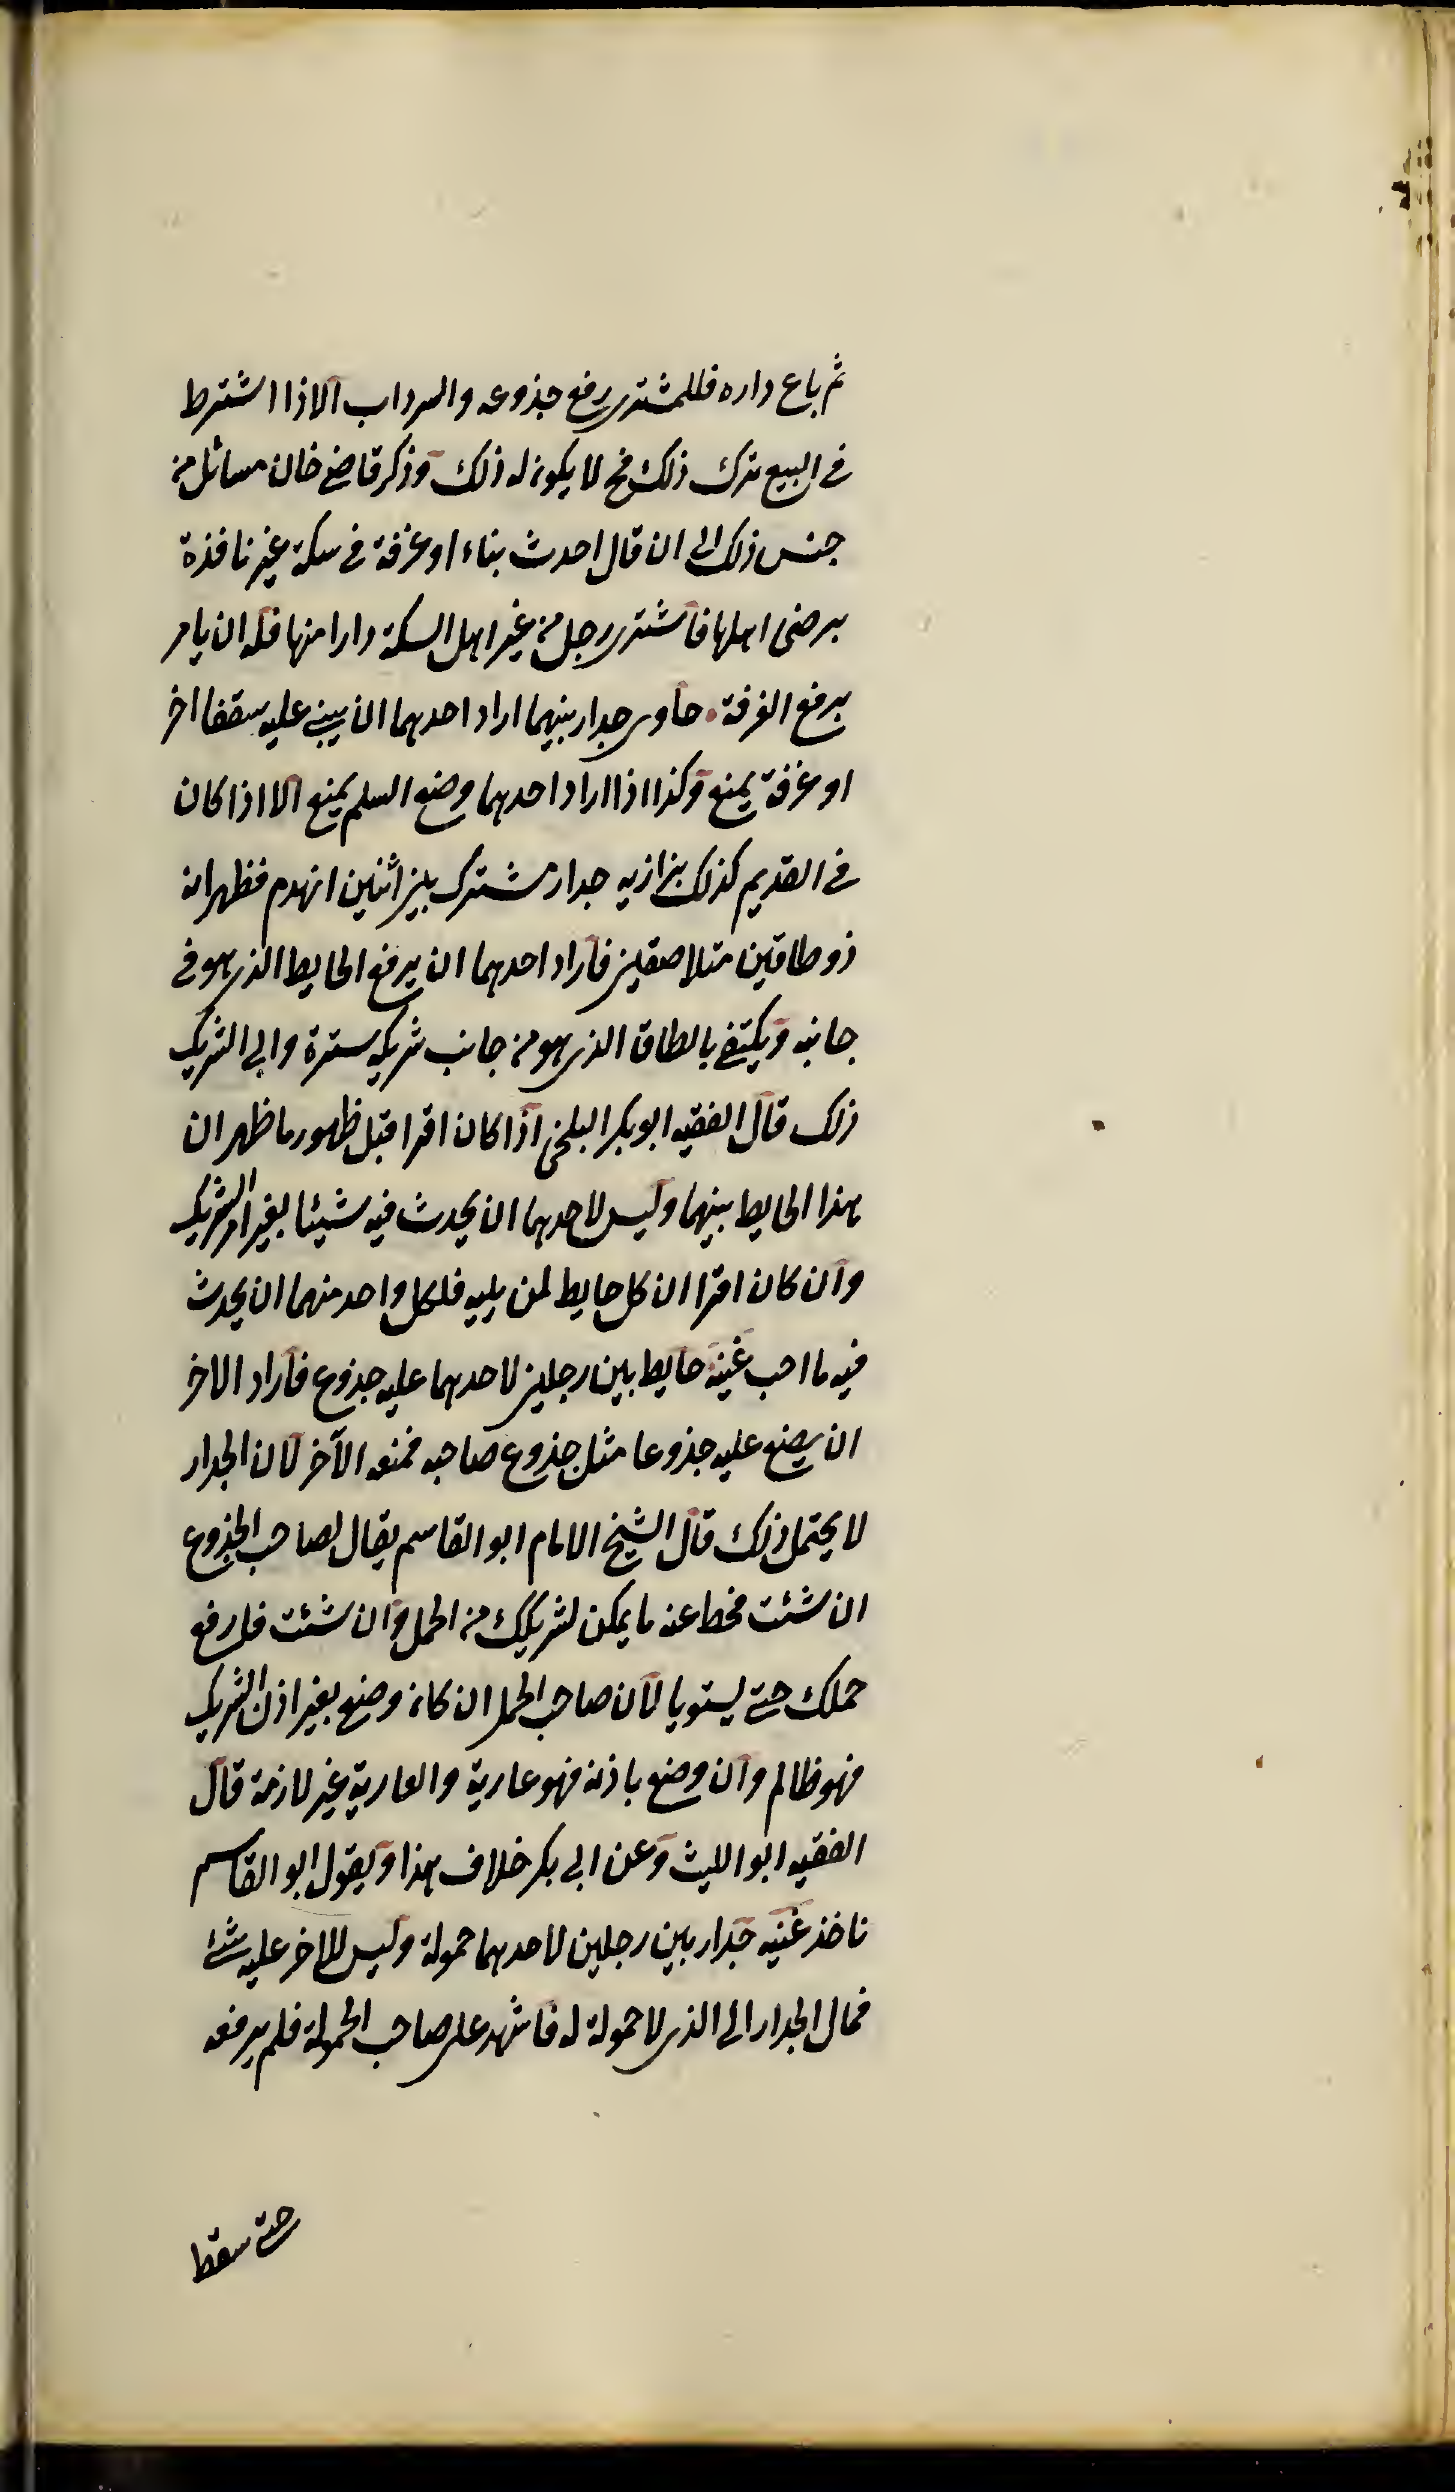 ثم باع داره فللمشتري رفع جذوعه والسرداب الا اذا اشترط
في البيع ترك ذلك فح لا يكون له ذلك وذكر قاضي خان مسائل من
جنس ذلك الى ان قال احدث بناء او غرفة في سكة غير نافذة
برضى اهلها فاشترى رجل من غير اهل السكة دارا منها فله ان يامر
برفع الغرفة حاوي جدار بينهما اراد احدهما ان يبني عليه سقفا اخر
او غرفة يمنع وكذا اذا اراد احدهما وضع السلم يمنع الا اذا كان
في القديم كذلك بزازيه جدار مشترك بين اثنين انهدم فظهر انه
ذو طاقين متلاصقين فاراد احدهما ان يرفع الحايط الذي هو في
جانبه ويكتفي بالطاق الذي هو من جانب شريكه سترة وابى الشريك
ذلك قال الفقيه ابو بكر البلخي اذا كان اقرا قبل ظهور ما ظهر ان
هذا الحايط بينهما وليس لاحدهما ان يحدث فيه شيئا بغير امر الشريك
وان كان اقرا ان كل حايط لمن يليه فلكل واحد منهما ان يحدث
فيه ما احب غنيه حايط بين رجلين لاحدهما عليه جذوع فاراد الاخر
ان يضع عليه جذوعا مثل جذوع صاحبه فمنعه الآخر لان الجدار
لا يحتمل ذلك قال الشيخ الامام ابو القاسم يقال لصاحب الجذوع
ان شئت فحط عنه ما يمكن لشريكك من الحمل وان شئت فلرفع
حملك حتى يستويا لان صاحب الحمل ان كان وضع بغير اذن الشريك
فهو ظالم وان وضع باذنه فهو عارية والعارية غير لازمة قال
الفقيه ابو الليث وعن ابي بكر خلاف هذا وبقول ابو القاسم
ناخذ غنيه جدار بين رجلين لاحدهما حمولة وليس للاخر عليه شئ
فمال الجدار الى الذي لا حمولة له فاشهد على صاحب الحمولة فلم يرفعه
حتى سقط